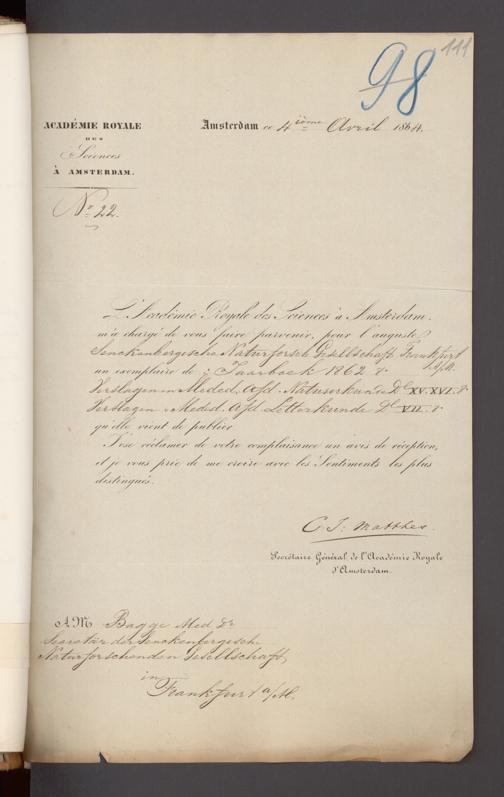 98
111
ACADÉMIE ROYALE
DES
Sciences
À AMSTERDAM.
Amsterdam ce 4ième Avril 1864.
No 22.
L'Académie Royale des Sciences à Amsterdam.
m'a chargé de vous faire parvenir, pour l'auguste
Senckenbergische Naturforsch Gesellschaft Frankfurt
a/M.
un exemplaire de: Jaarboek 1862 &
Verslagen en Meded. Afd. Natuurkunde Dl XV. XVI. &
Verslagen Meded. Afd. Letterkunde Dl VII. &
qu'elle vient de publier.
J'ose réclamer de votre complaisance un avis de réception,
et je vous prie de me croire avec les Sentiments les plus
distingués.
C. J. Matthes.
Secrétaire Général de l'Académie Royale
d'Amsterdam.
A M Bagge Med Dr
Secretär der Senckenbergische
Naturforschenden Gesellschaft
in
Frankfurt a/M.